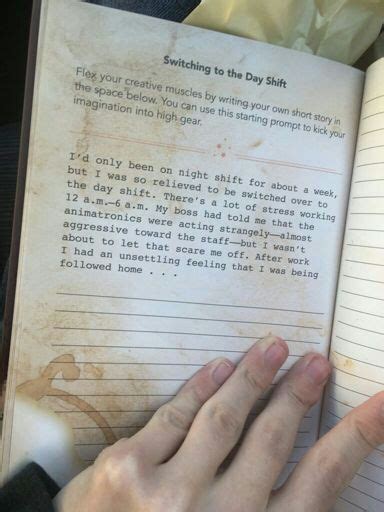 Switching to the Day Shift
Flex your creative muscles by writing your own short story in
the space below. You can use this starting prompt to kick your
imagination into high gear.
I'd only been on night shift for about a week,
but I was so relieved to be switched over to
the day shift. There's a lot of stress working
12 a.m.—6 a.m. My boss had told me that the
animatronics were acting strangely—almost
aggressive toward the staff—but I wasn't
about to let that scare me off. After work
I had an unsettling feeling that I was being
followed home . . .